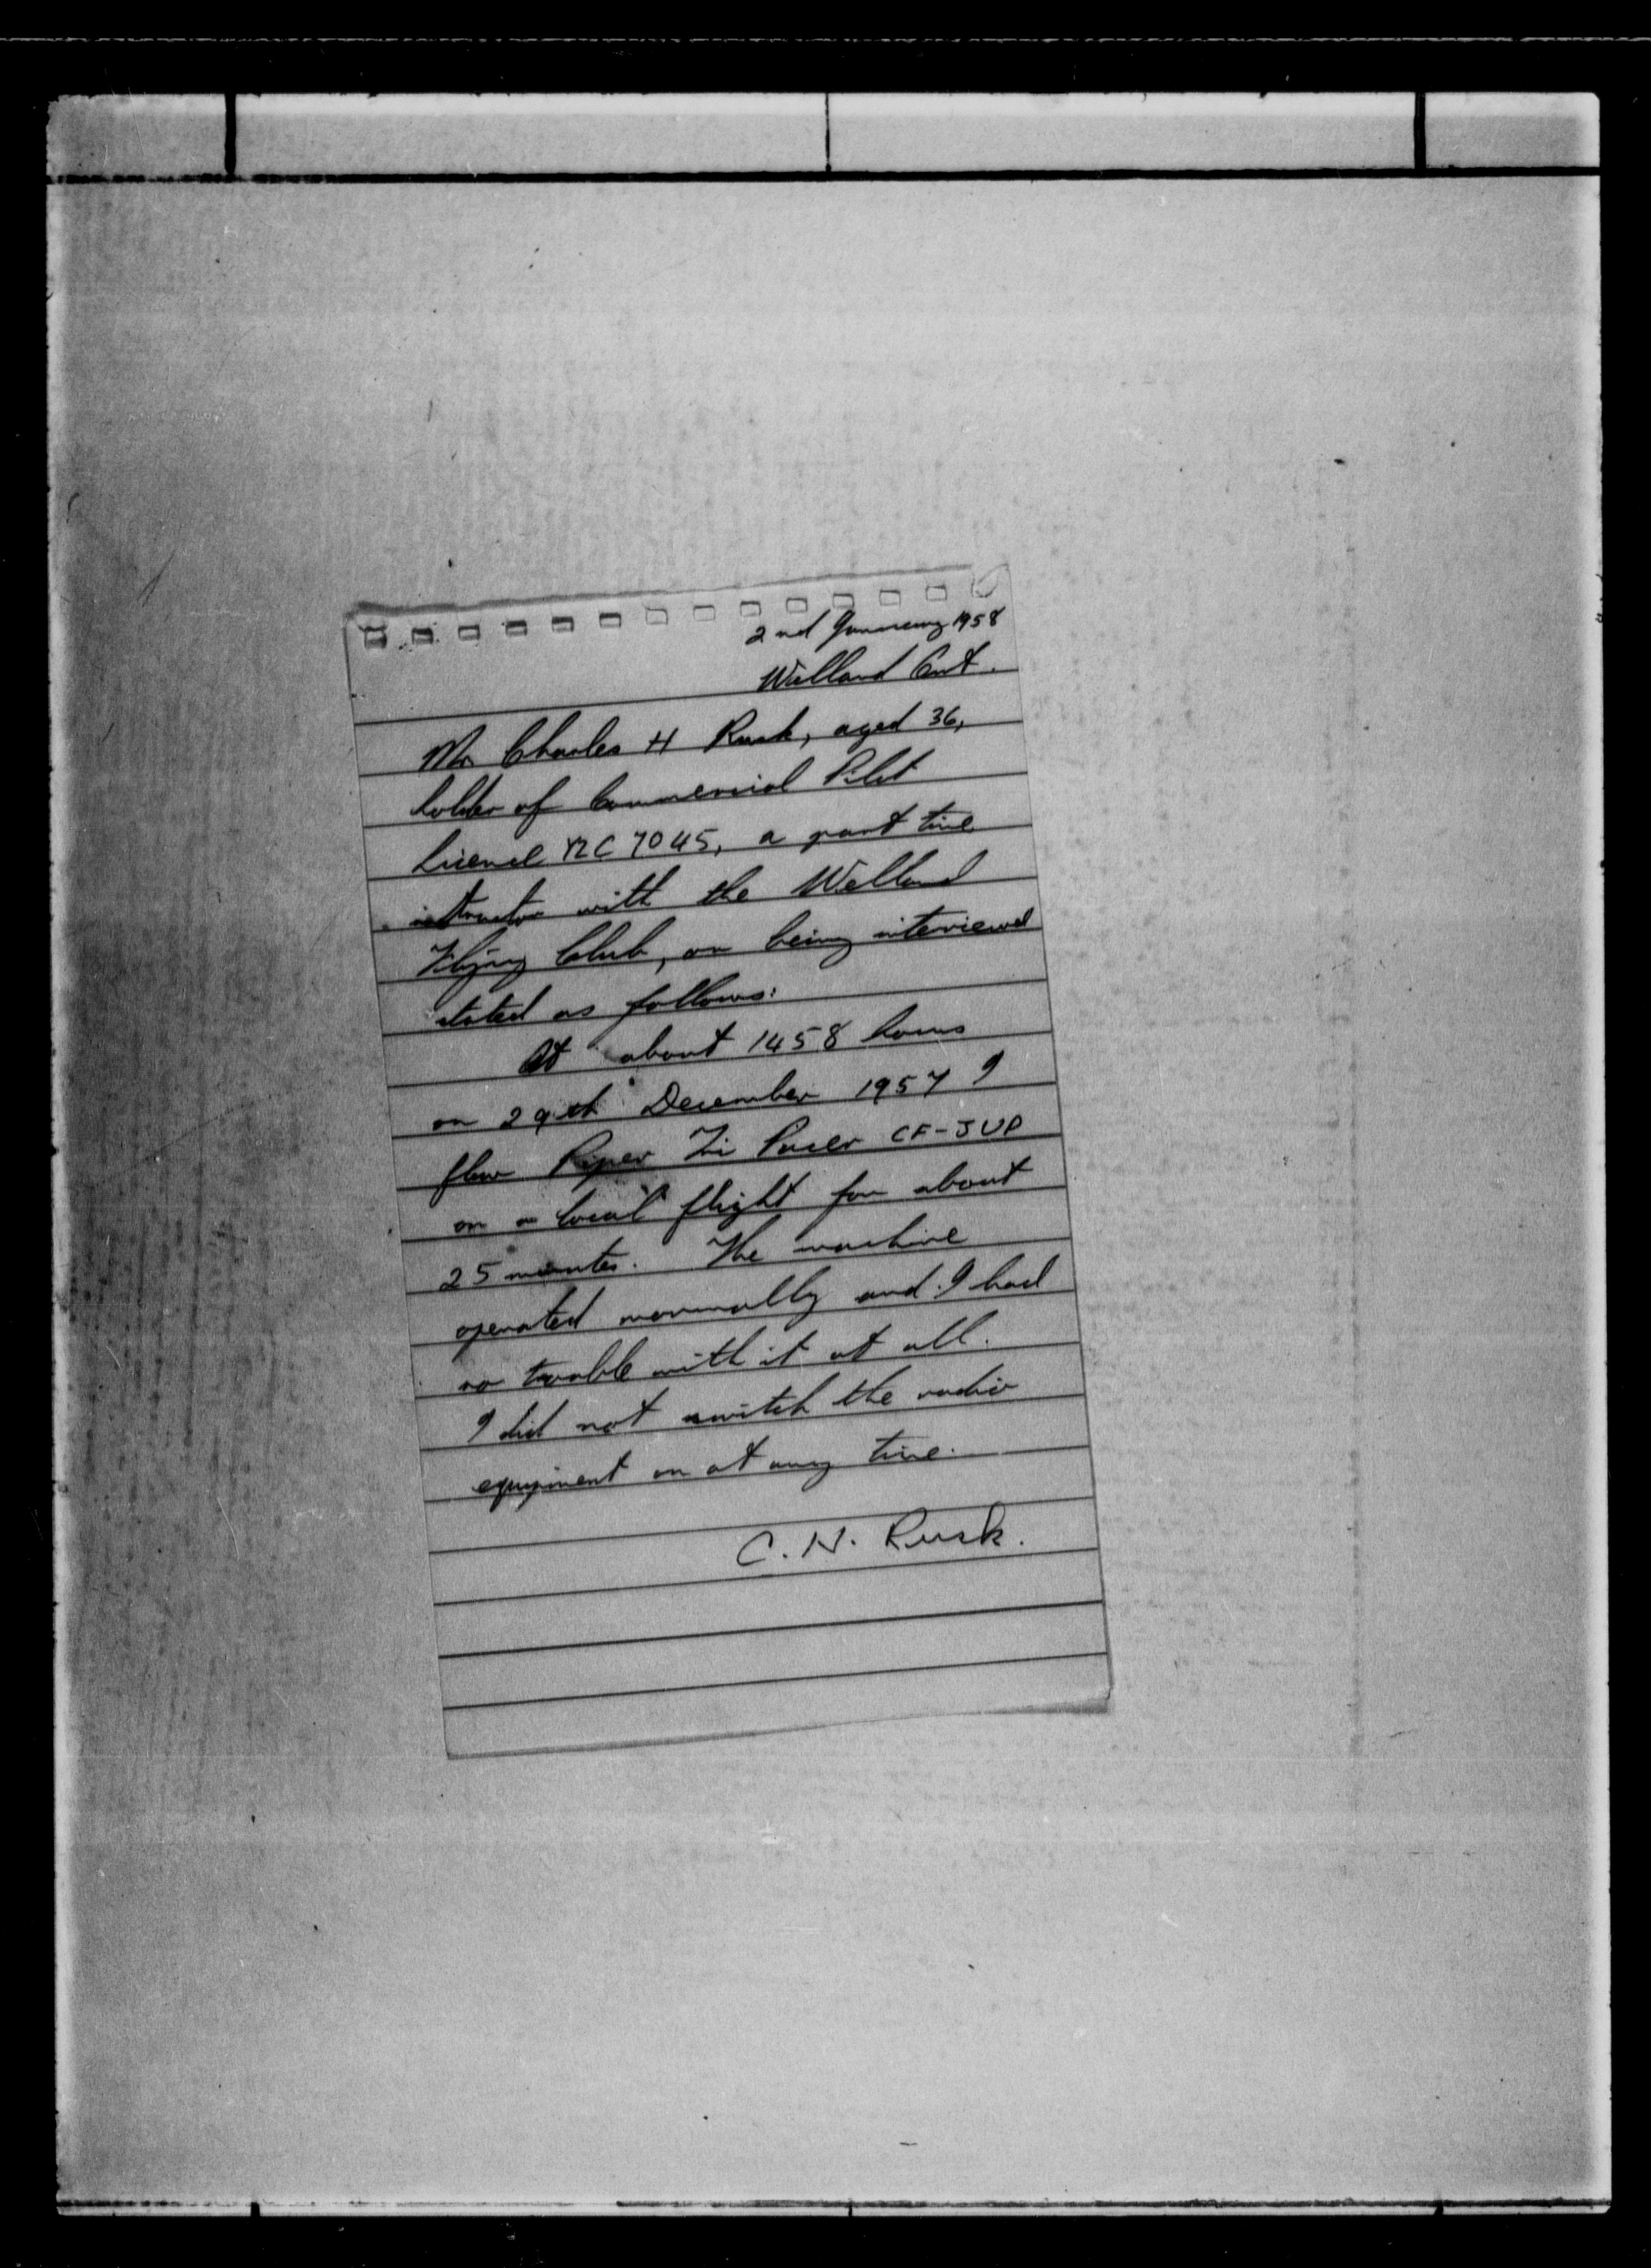 2nd January 1958
Welland Ont.
Mr Charles H Rusk, aged 36,
holder of Commercial Pilot
Licence YZC 7045, a part time
instructor with the Welland
Flying Club, on being interviewed
stated as follows:
At about 1458 hours
on 29th December 1957 I
flew Piper Tri Pacer CF-JUP
on a local flight for about
25 minutes. The machine
operated normally and I had
no trouble with it at all.
I did not switch the radio
equipment on at any time.
C. H. Rusk.